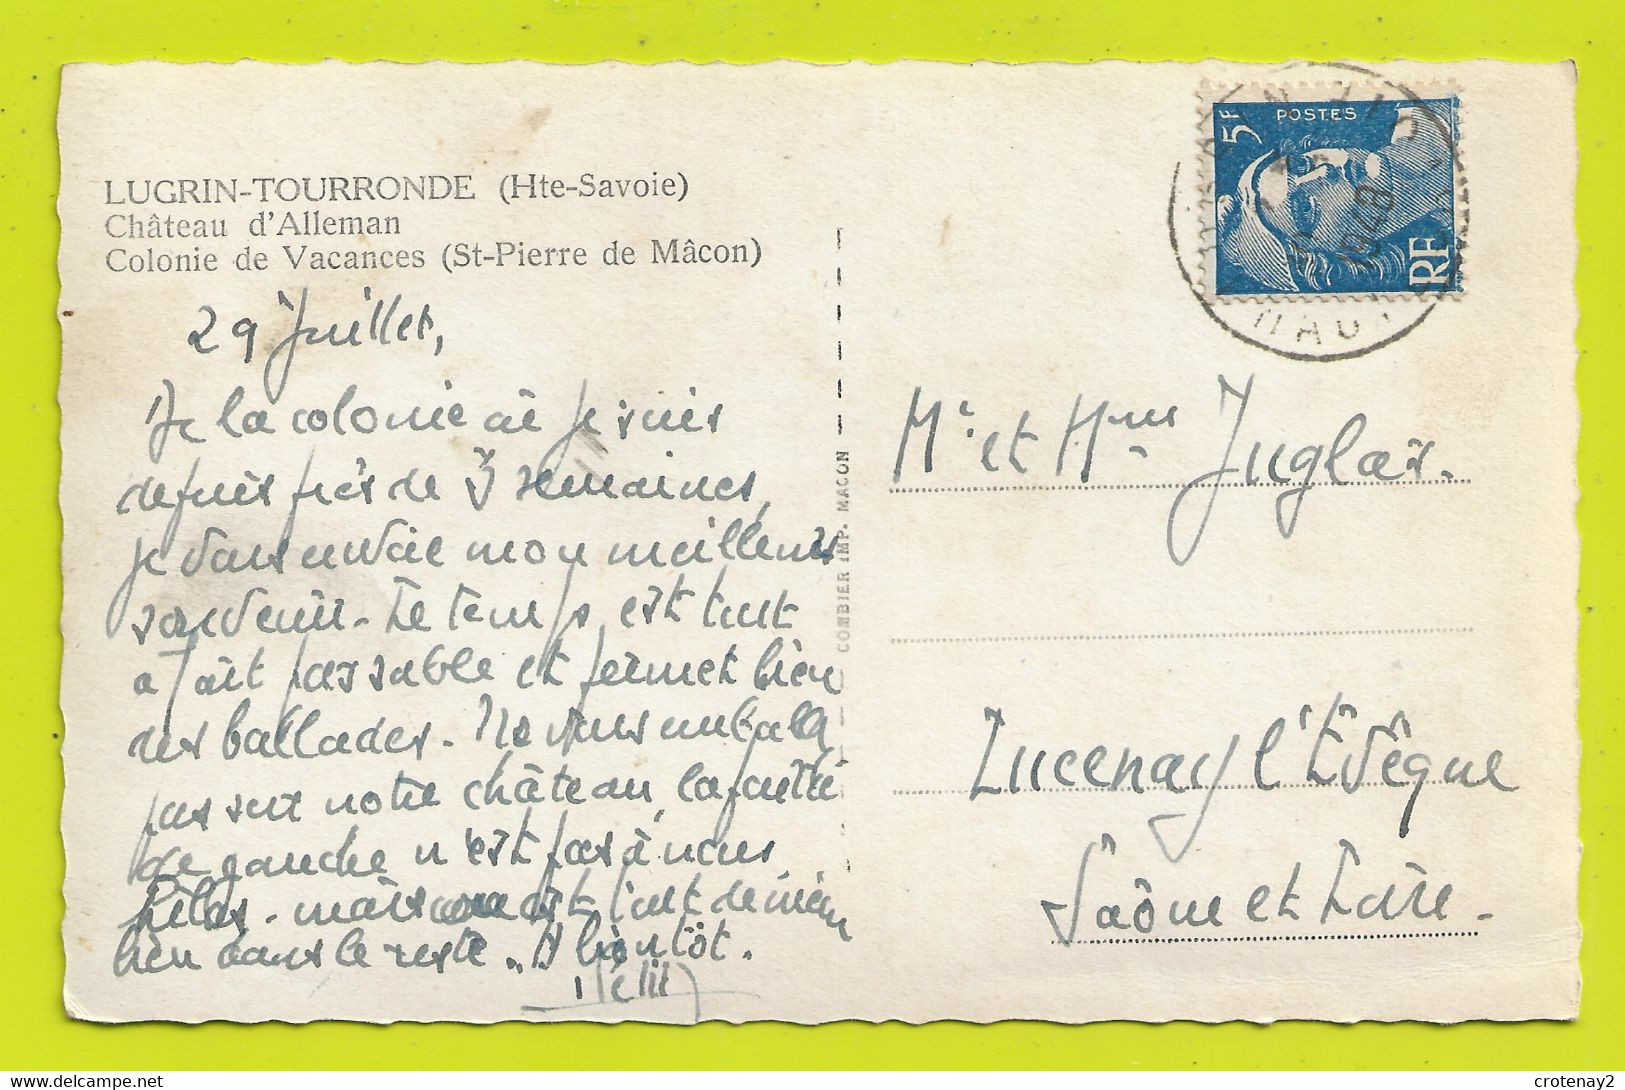 LUGRIN-TOURRONDE (Hte-Savoie)
Château d'Alleman
Colonie de Vacances (St-Pierre de Mâcon)
29 Juillet,
De la colonie où je suis
depuis près de 3 semaines,
je vous envoie mon meilleur
souvenir. Le temps est tout
à fait passable et permet bien
des ballades. Ne vous emballe
pas sur notre château, la partie
de gauche n'est pas à nous
hélas. mais on est tout de même
bien dans le reste. A bientôt.
COMBIER IMP. MACON
POSTES
5F
RF
1948
HAUT
Mr et Mme Juglar.
Lucenay l'Evêque
Saône et Loire.
crotenay2